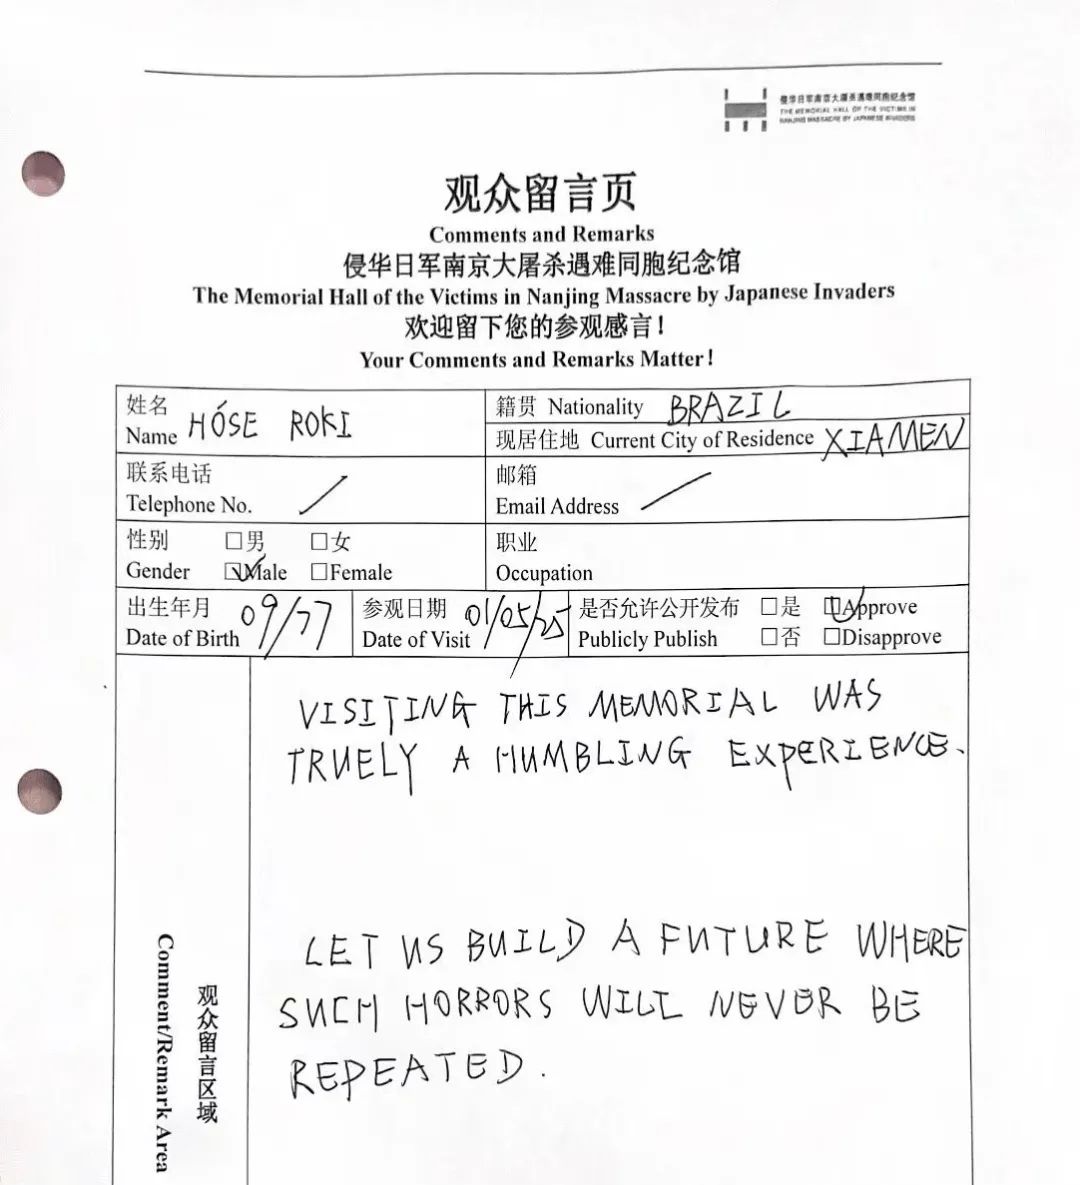 侵华日军南京大屠杀遇难同胞纪念馆
THE MEMORIAL HALL OF THE VICTIMS IN
NANJING MASSACRE BY JAPANESE INVADERS
观众留言页
Comments and Remarks
侵华日军南京大屠杀遇难同胞纪念馆
The Memorial Hall of the Victims in Nanjing Massacre by Japanese Invaders
欢迎留下您的参观感言！
Your Comments and Remarks Matter！
姓名
Name HÓSE ROKI
籍贯 Nationality BRAZIL
现居住地 Current City of Residence XIAMEN
联系电话
Telephone No. /
邮箱
Email Address /
性别 □男 □女
Gender ☑Male □Female
职业
Occupation
出生年月
Date of Birth 09/77
参观日期
Date of Visit 01/05/25
是否允许公开发布 □是 ☑Approve
Publicly Publish □否 □Disapprove
VISITING THIS MEMORIAL WAS
TRUELY A HUMBLING EXPERIENCE.
LET US BUILD A FUTURE WHERE
SUCH HORRORS WILL NEVER BE
REPEATED.
观众留言区域
Comment/Remark Area